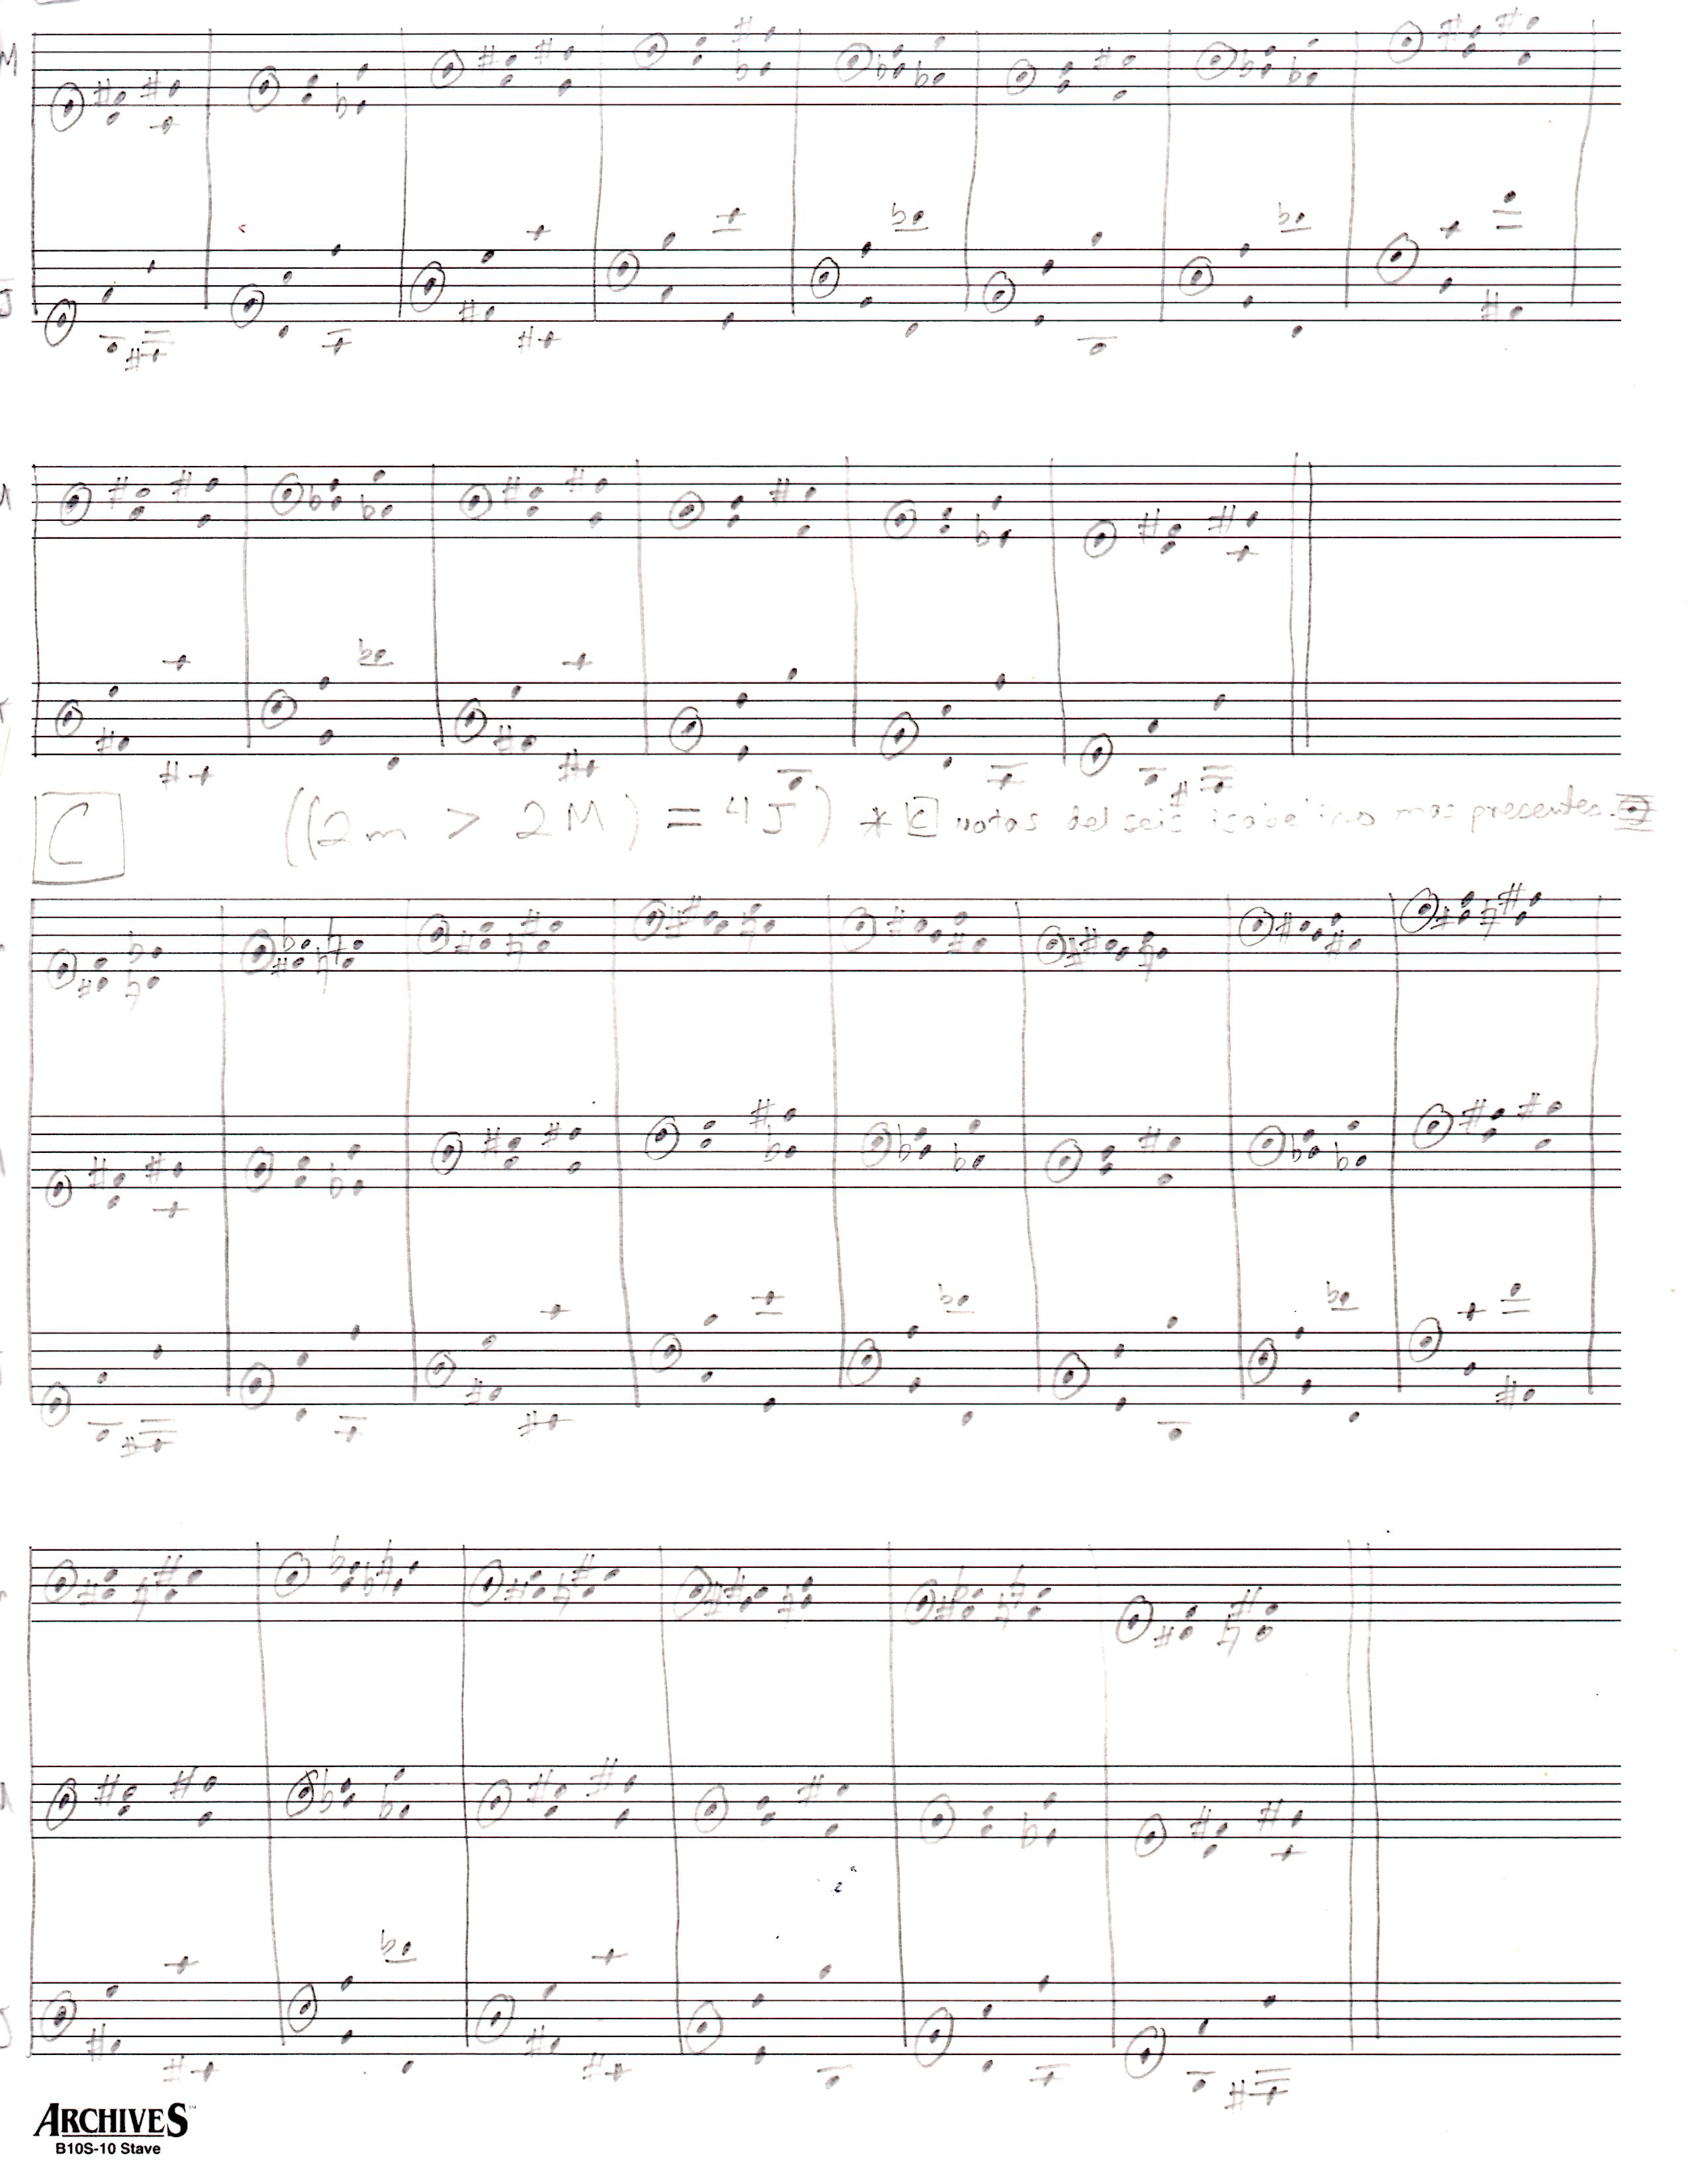 M
J
C ((2m > 2M) = 4J) * C notas del seis isabelino mas presentes.
J
ARCHIVES™
B10S-10 Stave